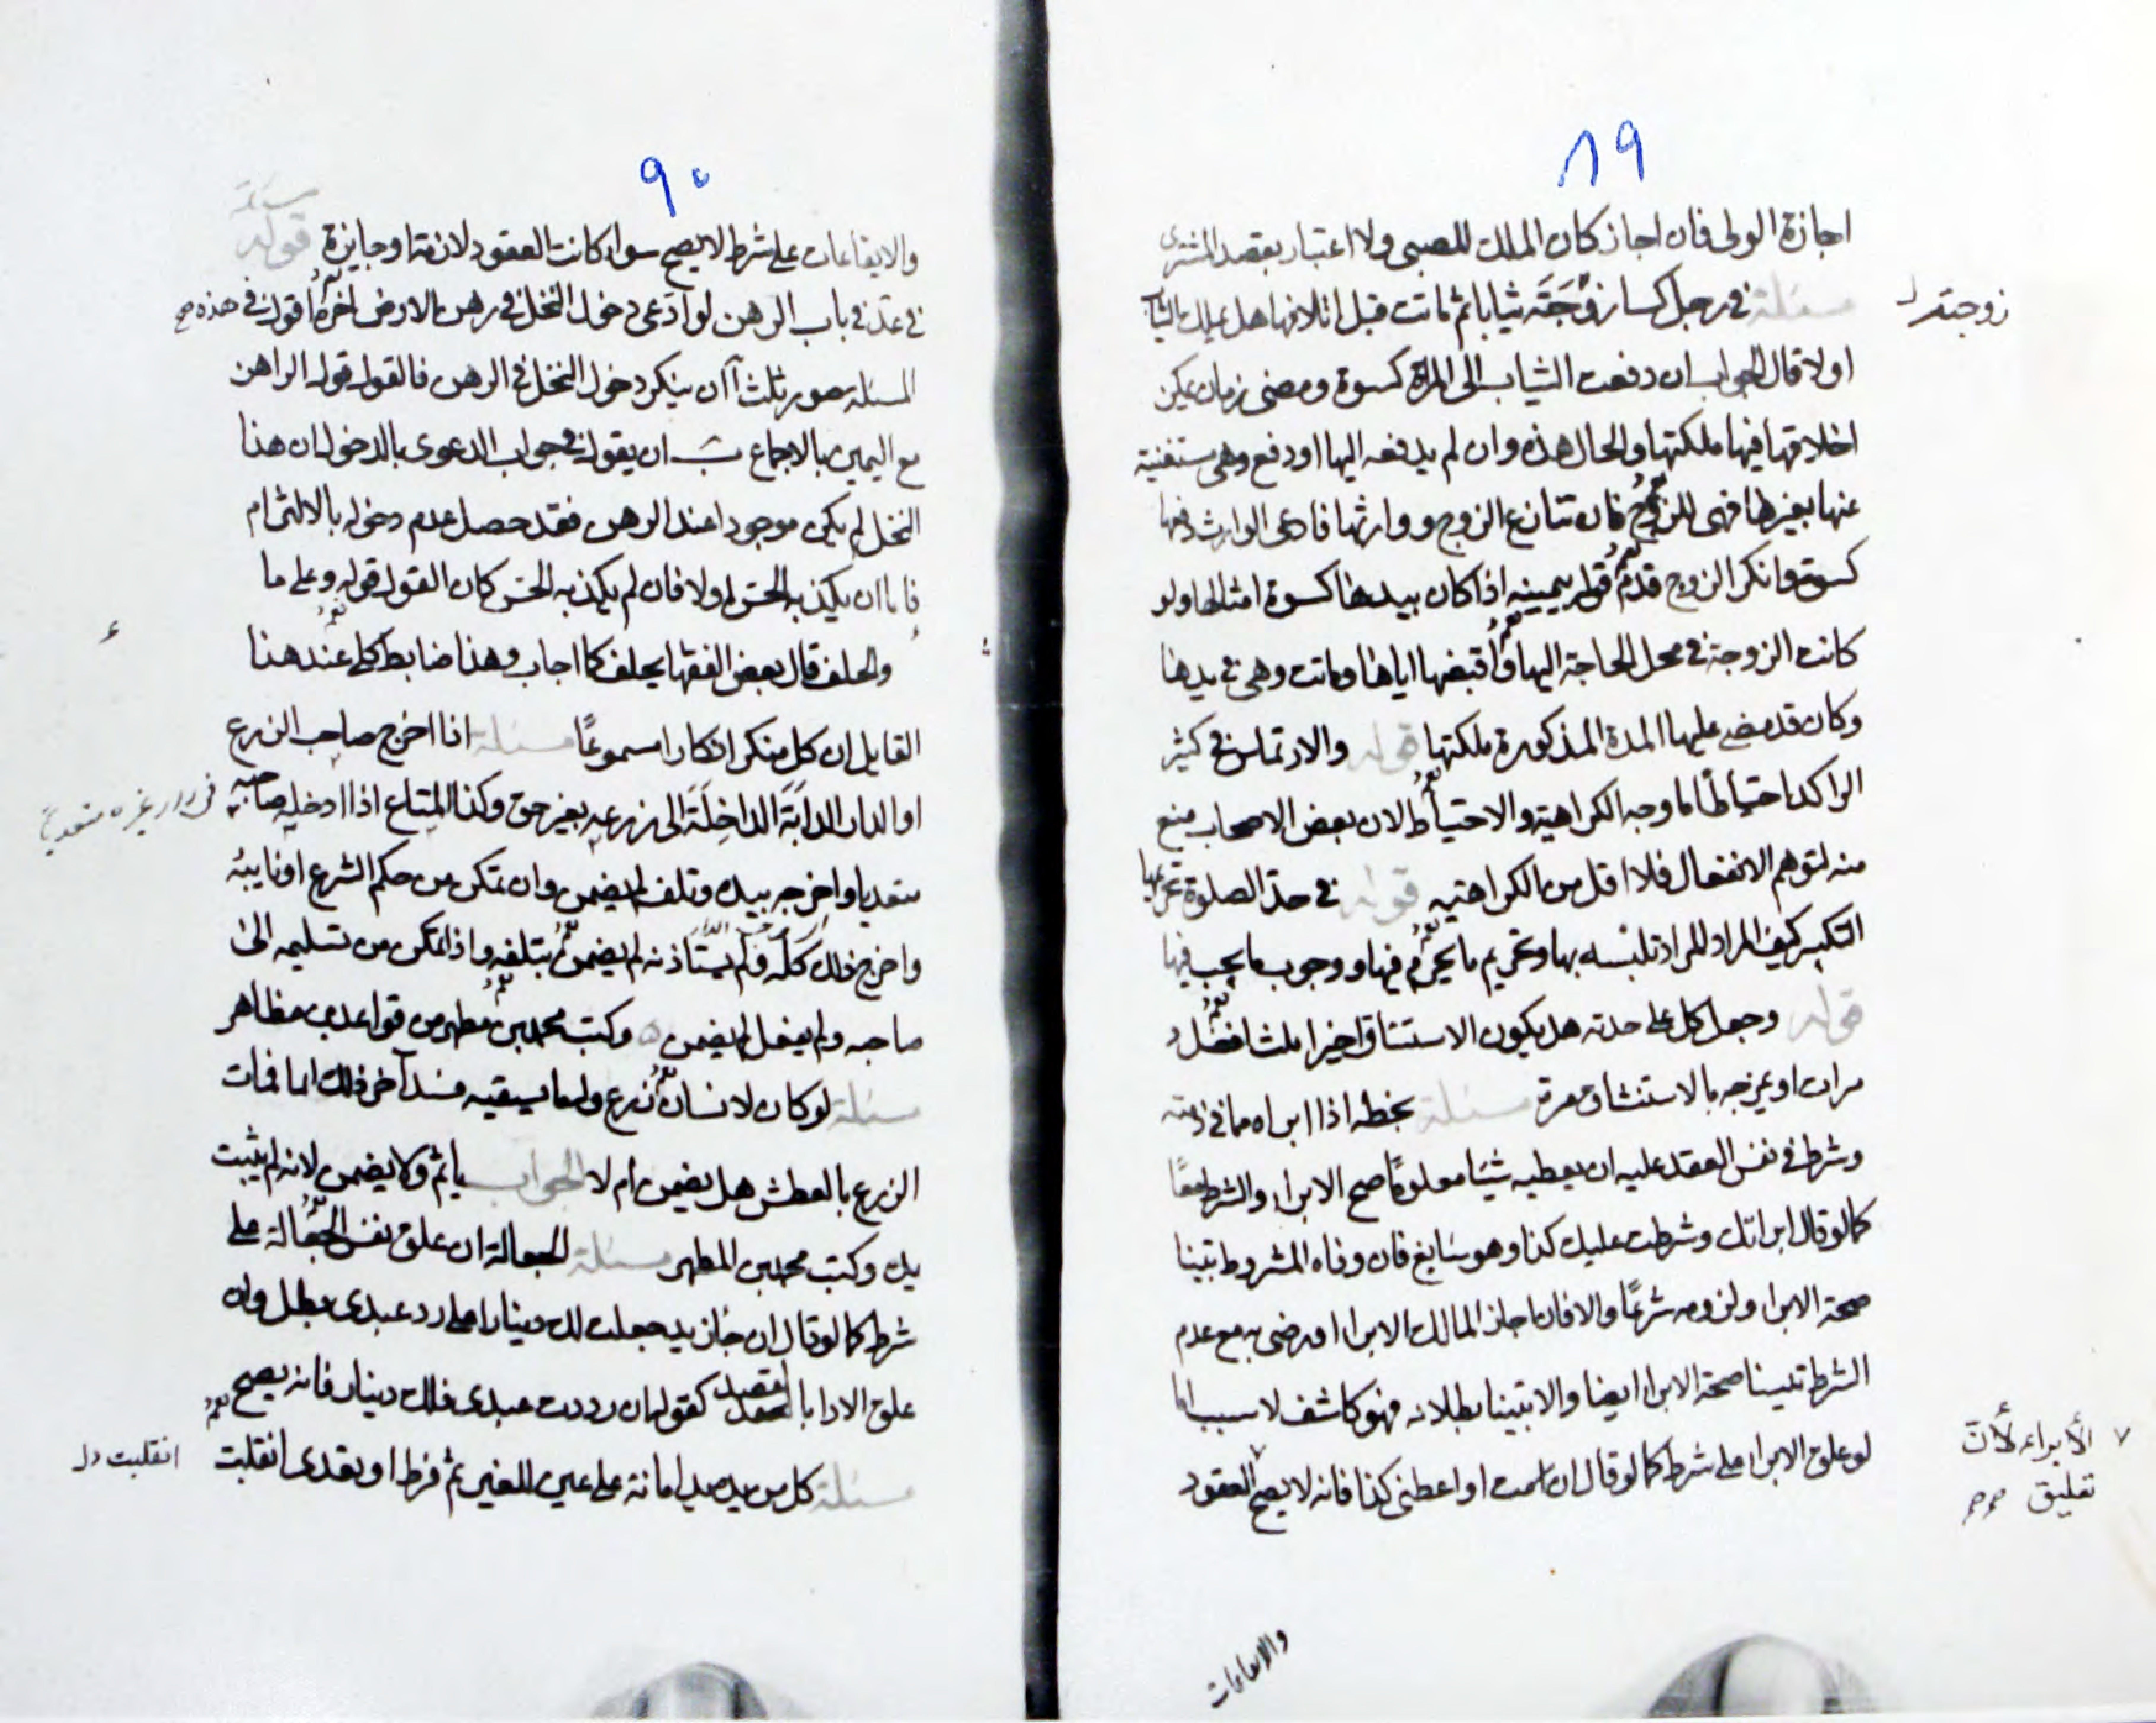 ٨٩
اجازة الولى فان اجاز كان الملك للصبى ولا اعتبار بقصد المشترى
مسئلة فى رجل كسا زوجته ثيابا ثم ماتت قبل اتلافها هل يملك الثياب
زوجته
اولا قال الجواب ان دفعت الثياب الى المراة كسوة ومضى زمان يمكن
اخلاقها فيها ملكتها والحال هذه وان لم يدفعه اليها او دفع وهى مستغنية
عنها بغيرها فهى للزوج فان تنازع الزوج ووارثها فادعى الوارث دفعها
كسوة وانكر الزوج قدم قوله بيمينه اذا كان بيدها كسوة امثالها ولو
كانت الزوجة فى محل الحاجة اليها واقبضها اياها وماتت وهى فى يدها
وكان قد مضى عليها المدة المذكورة ملكتها قوله والارتماس فى كثير
الراكد احتياطا ما وجه الكراهية والاحتياط لان بعض الاصحاب منع
منه لتوهم الانفعال فلا اقل من الكراهية قوله فى حد الصلوة تحريمها
التكبير كيف المراد المراد تلبسه بها وتحريم ما يحرم فيها ووجوب ما يجب فيها
قوله وجعل كل على حدته هل يكون الاستنشاق اخيرا بثلث افضل
مرات او يمزجه بالاستنشاق مرة مسئلة بخطه اذا ابراه مما فى ذمته
وشرط فى نفس العقد عليه ان يعطيه شيئا معلوما صح الابراء والشرط معا
كما لو قال ابراتك وشرطت عليك كذا وهو سايغ فان وفاه المشروط تبينا
صحة الابراء ولزومه شرعا والا فان اجاز المالك الابراء او رضى به مع عدم
الشرط تبينا صحة الابراء ايضا والا تبينا بطلانه فهو كاشف لا سبب اما
لو علق الابراء على شرط كما لو قال ان اسلمت او اعطنى كذا فانه لا يصح العقود
الأبراء لأن
تعليق
والايقاعات
٩٠
مسئلة
والايقاعات على شرط لا يصح سواء كانت العقود لازمة او جايزة قوله
فى عد فى باب الرهن لو ادعى دخول النخل فى رهن الارض اخره اقول فى هذه صح
المسئلة صور ثلث آ ان ينكر دخول النخل فى الرهن فالقول قول الراهن
مع اليمين بالاجماع ب ان يقول فى جواب الدعوى بالدخول ان هذا
النخل لم يكن موجودا عند الرهن فقد حصل عدم دخوله بالالتزام
فاما ان يكذبه الحس اولا فان لم يكذبه الحس كان القول قوله وعلى ما
والحلف قال بعض الفقها يحلف كما اجاب وهذا ضابط كلى عند هذا
القايل ان كل منكر انكارا مسموعا مسئلة اذا اخرج صاحب الزرع
او الدار الدابة الداخلة الى زرعه بغير حق وكذا المتاع اذا ادخله صاحبه
فى دار غيره متعديا
متعديا واخرجه بيده وتلف لم يضمن وان تمكن من حكم الشرع او نايبه
واخرج ذلك كله ولم يستاذنه لم يضمن بتلفه واذا تمكن من تسليمه الى
صاحبه ولم يفعل لم يضمن وكتب محمد بن مطهر من قواعد بن مظاهر
مسئلة لو كان لانسان زرع وله ما يسقيه فسد آخر ذلك الما فمات
الزرع بالعطش هل يضمن ام لا الجواب ياثم ولا يضمن لانه لم يثبت
يده وكتب محمد بن المطهر مسئلة الجعالة ان علق نفس الجعالة على
شرط كما لو قال ان جاء زيد جعلت لك دينارا على رد عبدى بطل وان
علق الاداء بالعقد كقوله ان رددت عبدى فلك دينار فانه يصح
مسئلة كل من يده يد امانة على عين للغير ثم فرط او تعدى انقلبت
انقلبت